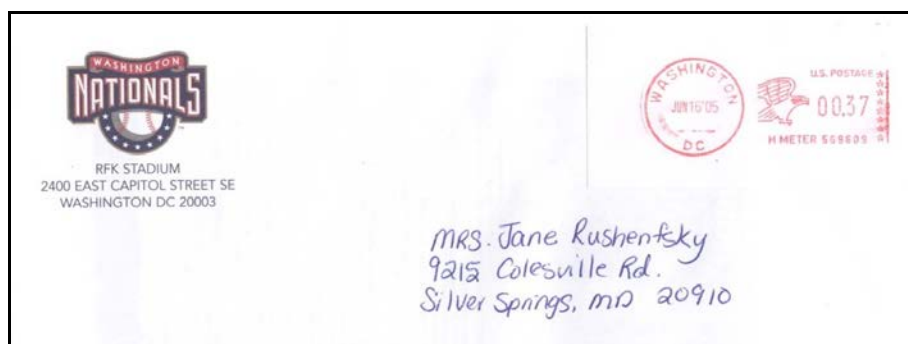 WASHINGTON
NATIONALS
RFK STADIUM
2400 EAST CAPITOL STREET SE
WASHINGTON DC 20003
WASHINGTON
JUN 16 '05
DC
U.S. POSTAGE
00.37
H METER 508609
MRS. Jane Rushenfsky
9215 Colesville Rd.
Silver Springs, MD 20910